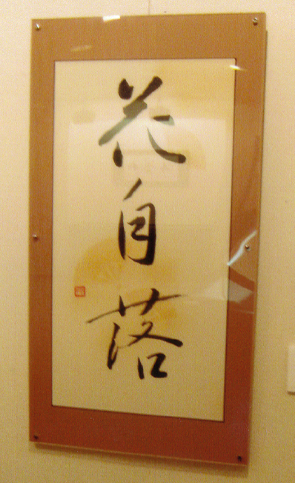 花自落